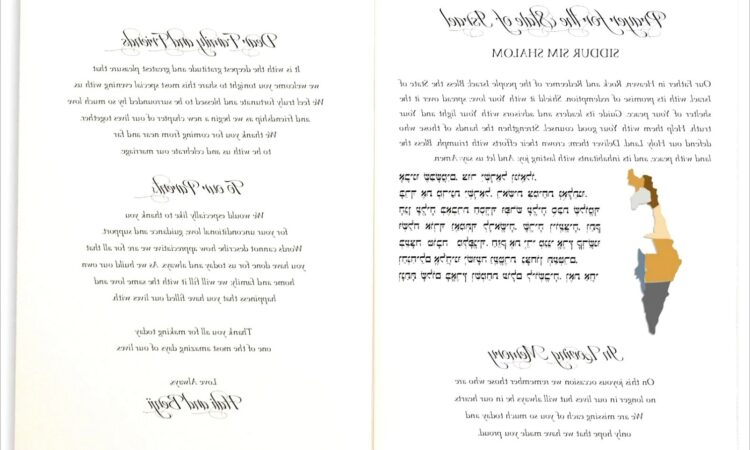 Prayer for the State of Israel
SIDDUR SIM SHALOM
Our Father in Heaven, Rock and Redeemer of the people Israel; Bless the State of
Israel, with its promise of redemption. Shield it with Your love; spread over it the
shelter of Your peace. Guide its leaders and advisors with Your light and Your
truth. Help them with Your good counsel. Strengthen the hands of those who
defend our Holy Land. Deliver them; crown their efforts with triumph. Bless the
land with peace, and its inhabitants with lasting joy. And let us say: Amen.
אבינו שבשמים, צור ישראל וגואלו,
ברך את מדינת ישראל, ראשית צמיחת גאולתנו.
הגן עליה באברת חסדך ופרוש עליה סכת שלומך
ושלח אורך ואמתך לראשיה, שריה ויועציה, ותקנם
בעצה טובה מלפניך. חזק את ידי מגני ארץ קדשנו
והנחילם אלהינו ישועה ועטרת נצחון תעטרם.
ונתת שלום בארץ ושמחת עולם ליושביה,
In Loving Memory
On this joyous occasion we remember those who are
no longer in our lives but will always be in our hearts.
We are missing each of you so much today and
only hope that we have made you proud.
Dear Family and Friends
It is with the deepest gratitude and greatest pleasure that
we welcome you tonight to share this most special evening with us.
We feel truly fortunate and blessed to be surrounded by so much love
and friendship as we begin a new chapter of our lives together.
We thank you for coming from near and far
to be with us and celebrate our marriage.
To our Parents
We would especially like to thank you
for your unconditional love, guidance and support.
Words cannot describe how appreciative we are for all that
you have done for us today and always. As we build our own
home and family, we will fill it with the same love and
happiness that you have filled our lives with.
Thank you all for making today
one of the most amazing days of our lives.
Love Always,
Hali and Benji